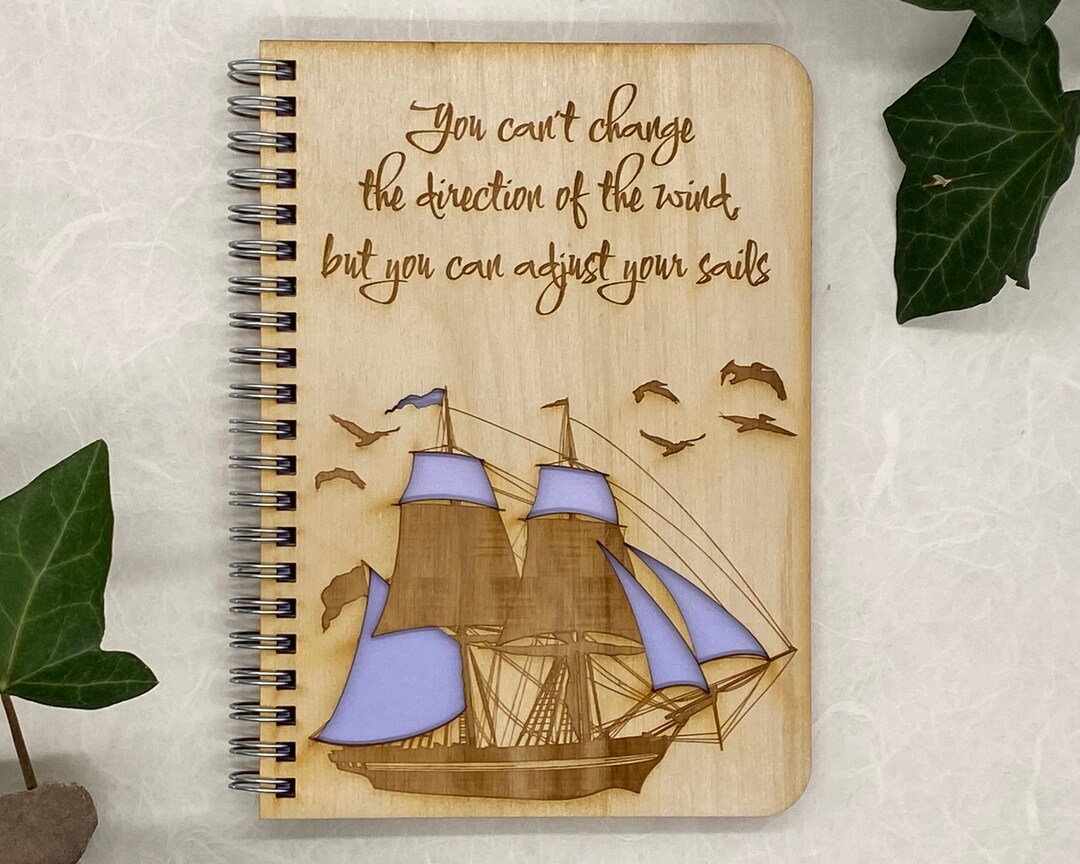 You can't change
the direction of the wind,
but you can adjust your sails